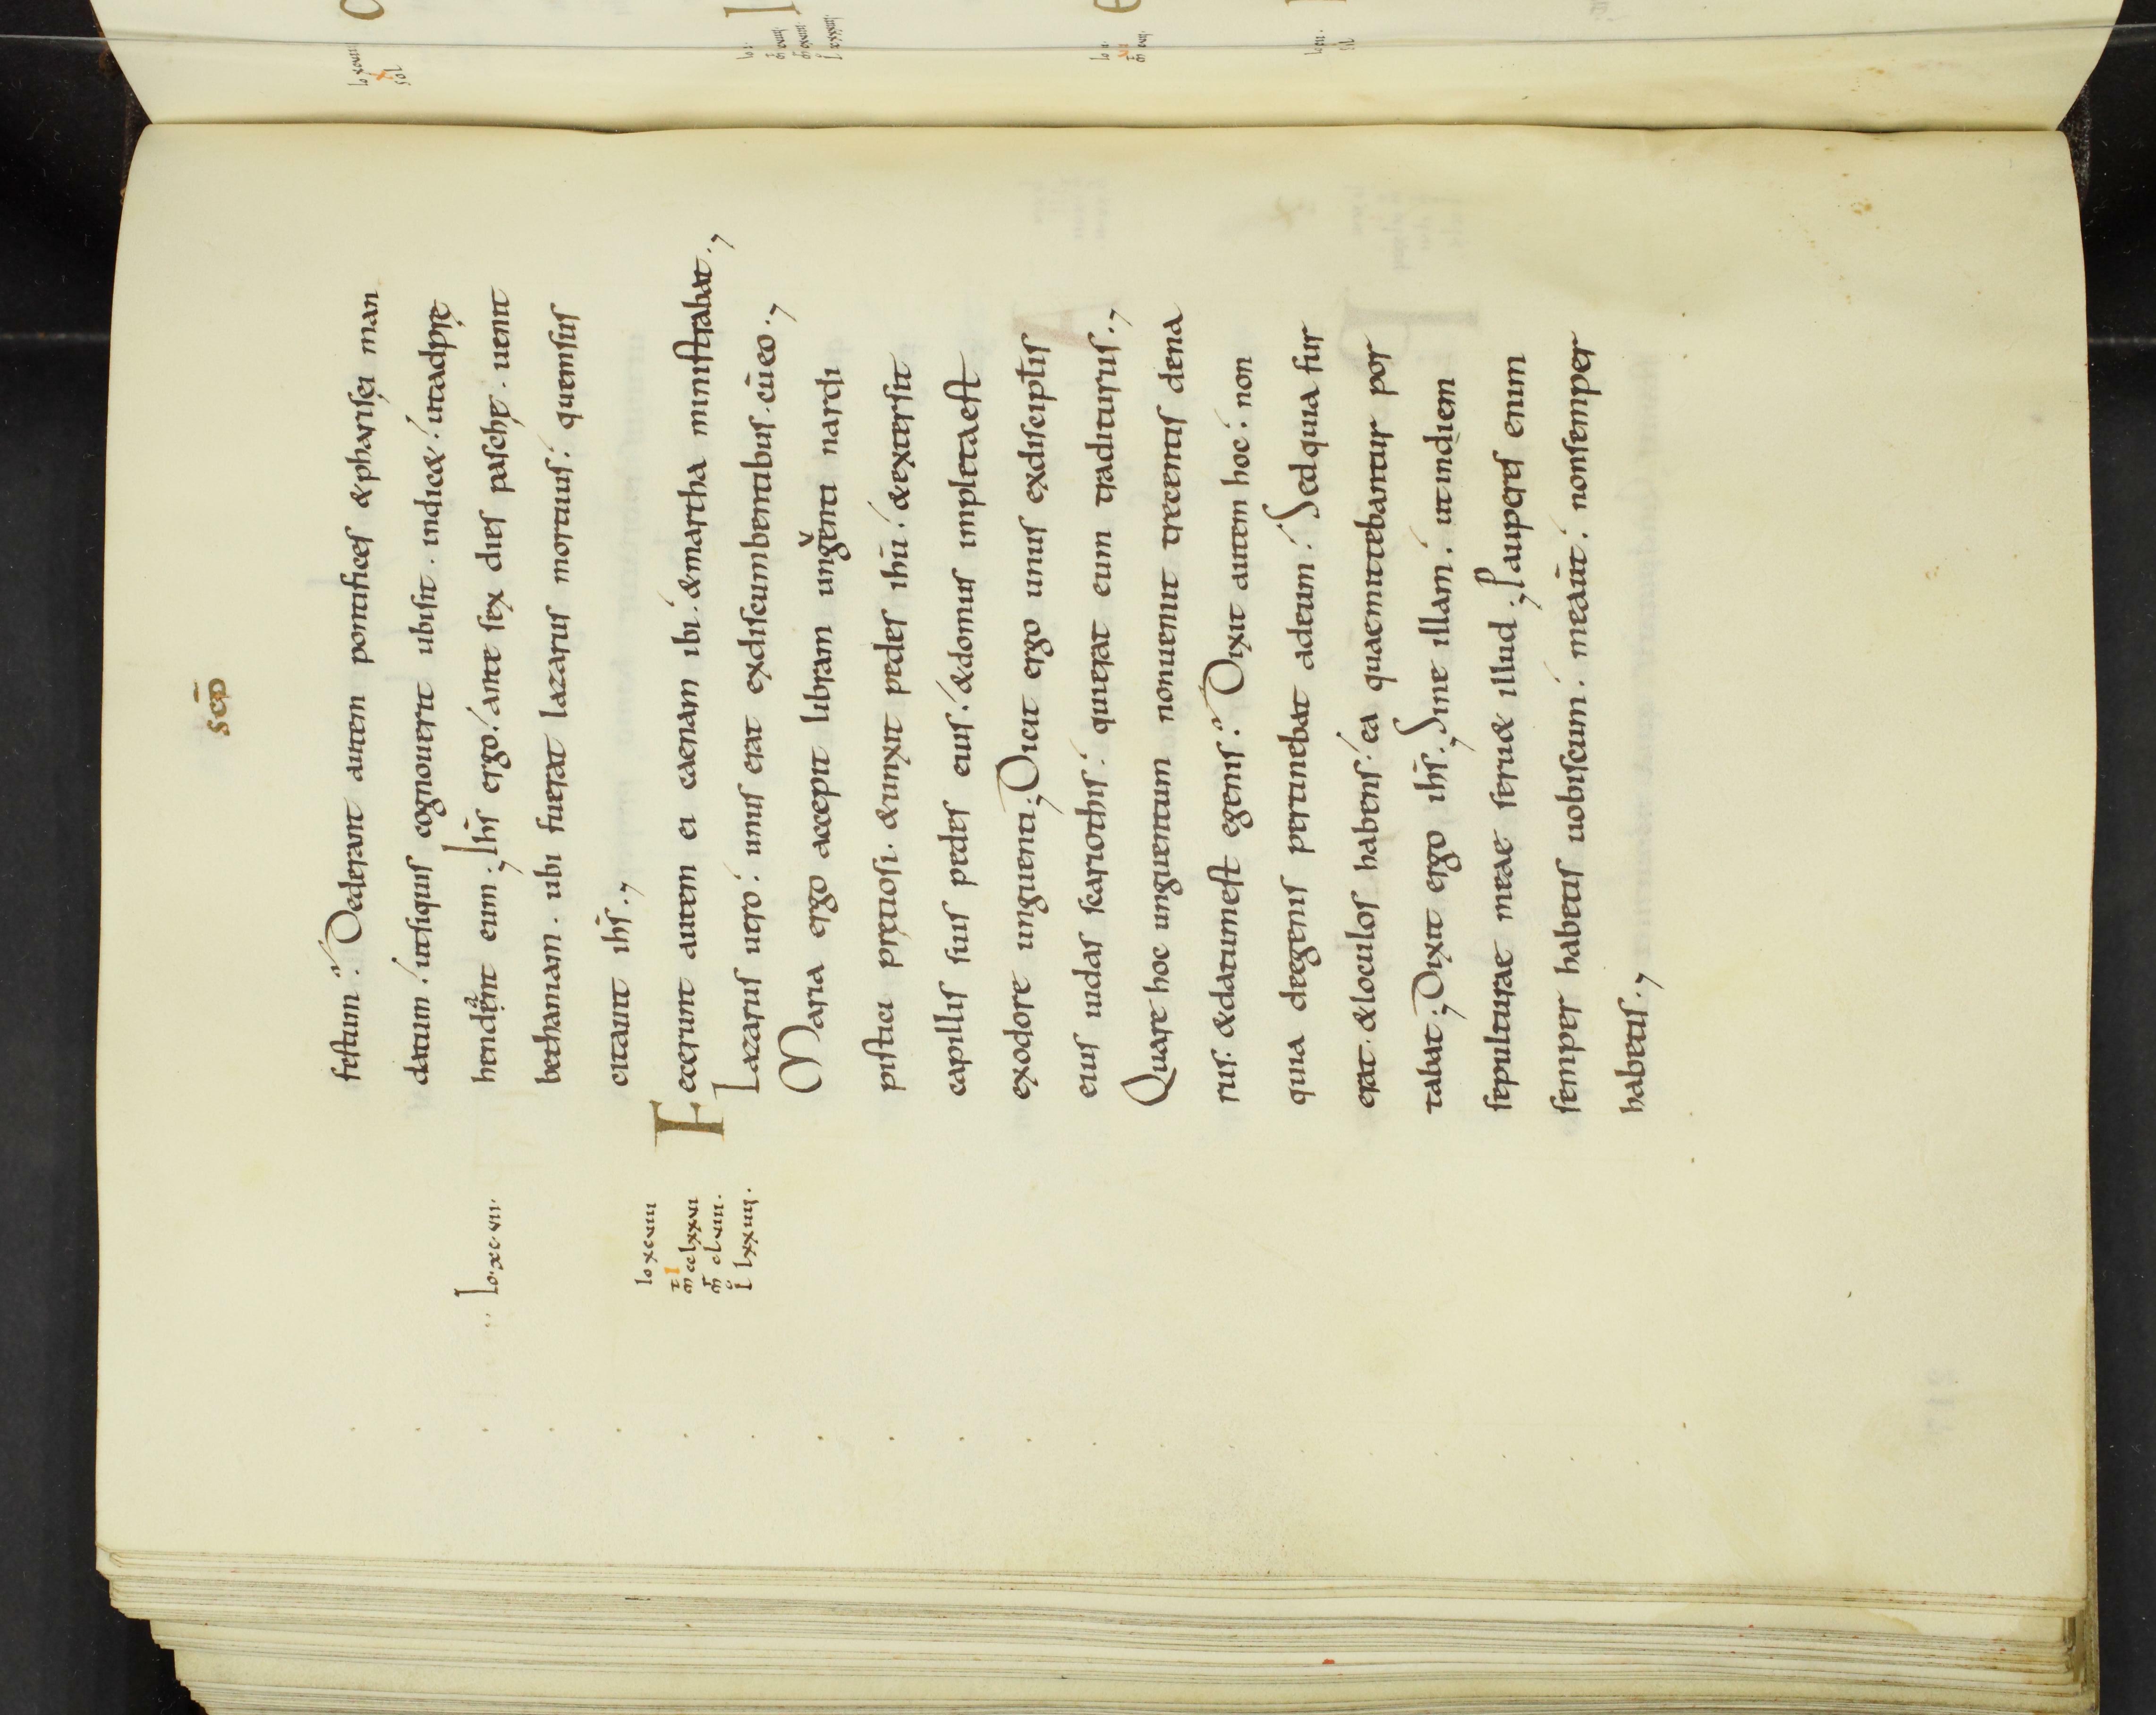 scđ
festum. Dederant autem pontifices &pharisei man
datum. utsiquis cognouerit ubisit. indic&. utadprę
hendent eum; Ihs̄ ergo. ante sex dies paschę. uenit
bethaniam. ubi fuerat lazarus mortuus. quemsus
citauit ihs̄.,
Fecerunt autem ei caenam ibi. &martha ministrabat.,
Lazarus uero. unus erat exdiscumbentibus. cūeo.,
Maria ergo accepit libram ungenti nardi
pistici pretiosi. &unxit pedes ihū. &extersit
capillis suis pedes eius. &domus impletaest
exodore unguenti; Dicit ergo unus exdiscipulis
eius iudas scariothis. quierat eum traditurus.,
Quare hoc unguentum nonueniit trecentis dena
riis. &datumest egenis. Dixit autem hoc. non
quia deegenis pertinebat adeum. Sedquia fur
erat. &loculos habens. ea quaemittebantur por
tabat; Dixit ergo ihs̄. Sine illam. utindiem
sepulturae meae seru& illud; Pauperes enim
semper habetis uobiscum. meaūt. nonsemper
habetis.,
Io. xc. vii.
Io xcviii
mt cclxxvi
mr clviii.
l lxxiiii.